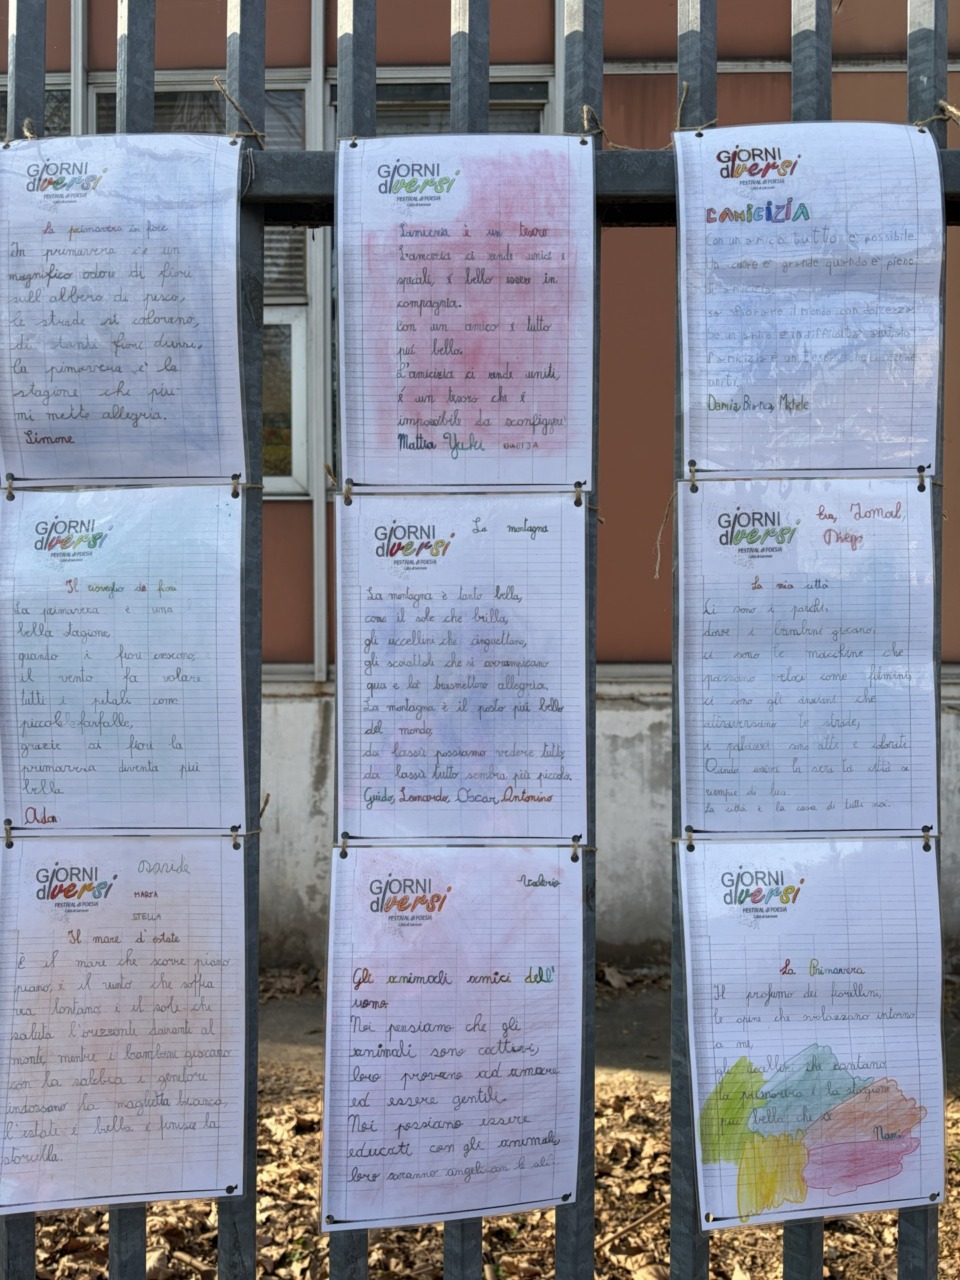 GiORNI
diversi
FESTIVAL di POESIA
La primavera in fiore
In primavera c'è un
magnifico odore di fiori
sull'albero di pesco,
le strade si colorano,
di tanti fiori diversi,
la primavera è la
stagione che più
mi mette allegria.
Simone
GiORNI
diversi
FESTIVAL di POESIA
L'amicizia è un tesoro
L'amicizia ci rende unici e
speciali, è bello essere in
compagnia.
Con un amico è tutto
più bello.
L'amicizia ci rende uniti,
è un tesoro che è
impossibile da sconfiggere
Mattia Yuki
GiORNI
diversi
FESTIVAL di POESIA
L'AMICIZIA
Con un amico tutto è possibile
Un cuore è grande quando è pieno
Se un amico è in difficoltà aiutalo
L'amicizia è un tesoro
uniti.
Bianca, Michele
GiORNI
diversi
FESTIVAL di POESIA
Il risveglio dei fiori
La primavera è una
bella stagione,
quando i fiori crescono,
il vento fa volare
tutti i petali come
piccole farfalle,
grazie ai fiori la
primavera diventa più
bella
Adam
GiORNI
diversi
FESTIVAL di POESIA
La montagna
La montagna è tanto bella,
come il sole che brilla,
gli uccellini che cinguettano,
gli scoiattoli che si arrampicano
qua e là trasmettono allegria,
La montagna è il posto più bello
del mondo,
da lassù possiamo vedere tutto,
da lassù tutto sembra più piccolo.
Guido, Leonardo, Oscar, Antonino
GiORNI
diversi
FESTIVAL di POESIA
Diego
La mia città
Ci sono i parchi,
dove i bambini giocano,
ci sono le macchine che
passano veloci come fulmini,
ci sono gli anziani che
attraversano le strade,
i palazzi sono alti e colorati
Quando scende la sera la città si
riempie di luci.
La città è la casa di tutti noi.
GiORNI
diversi
FESTIVAL di POESIA
Davide
MARTA
STELLA
Il mare d'estate
È il mare che scorre piano
piano, è il vento che soffia
via lontano è il sole che
saluta l'orizzonte davanti al
monte, mentre i bambini giocano
con la sabbia i genitori
indossano la maglietta bianca,
l'estate è bella è finita la
storiella.
GiORNI
diversi
FESTIVAL di POESIA
Valerio
Gli animali amici dell'
uomo
Noi pensiamo che gli
animali sono cattivi,
loro provano ad amare
ed essere gentili.
Noi possiamo essere
educati con gli animali,
loro saranno angeli con le ali.
GiORNI
diversi
FESTIVAL di POESIA
La Primavera
Il profumo dei fiorellini,
le api che svolazzano intorno
a me,
gli uccellini che cantano
la primavera è la stagione
più bella che